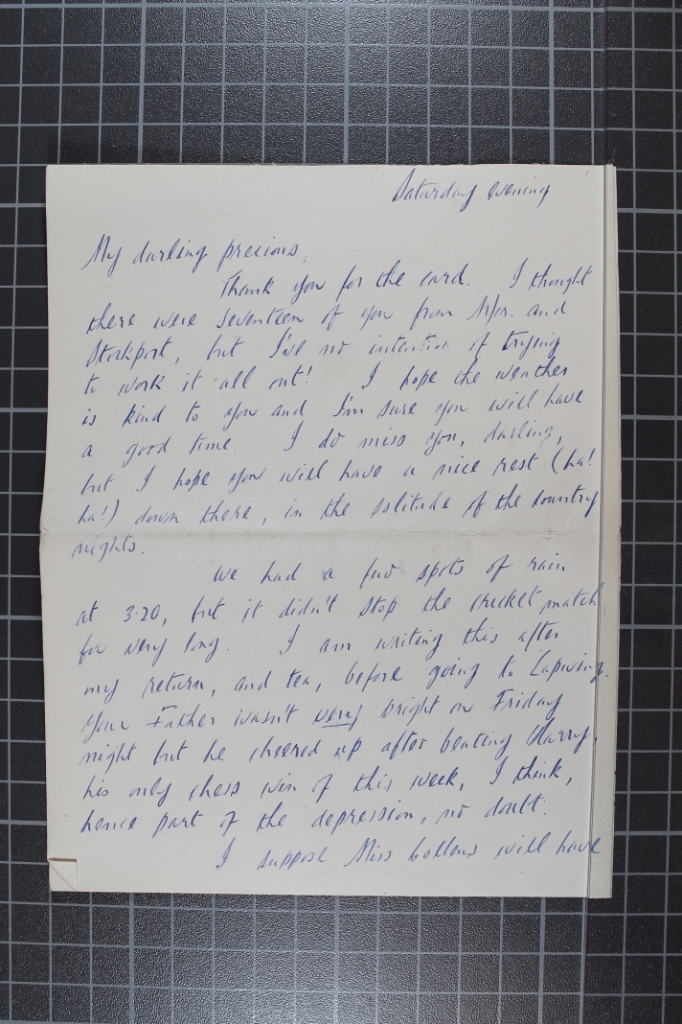 Saturday evening
My darling precious,
Thank you for the card. I thought
there were seventeen of you from M/cr. and
Stockport, but I've no intention of trying
to work it all out! I hope the weather
is kind to you and I'm sure you will have
a good time. I do miss you, darling,
but I hope you will have a nice rest (ha!
ha!) down there, in the solitude of the country
nights.
We had a few spots of rain
at 3.20, but it didn't stop the cricket match
for very long. I am writing this after
my return, and tea, before going to Lapwing.
Your Father wasn't very bright on Friday
night but he cheered up after beating Harry,
his only chess win of this week, I think,
hence part of the depression, no doubt.
I suppose Miss Collens will have